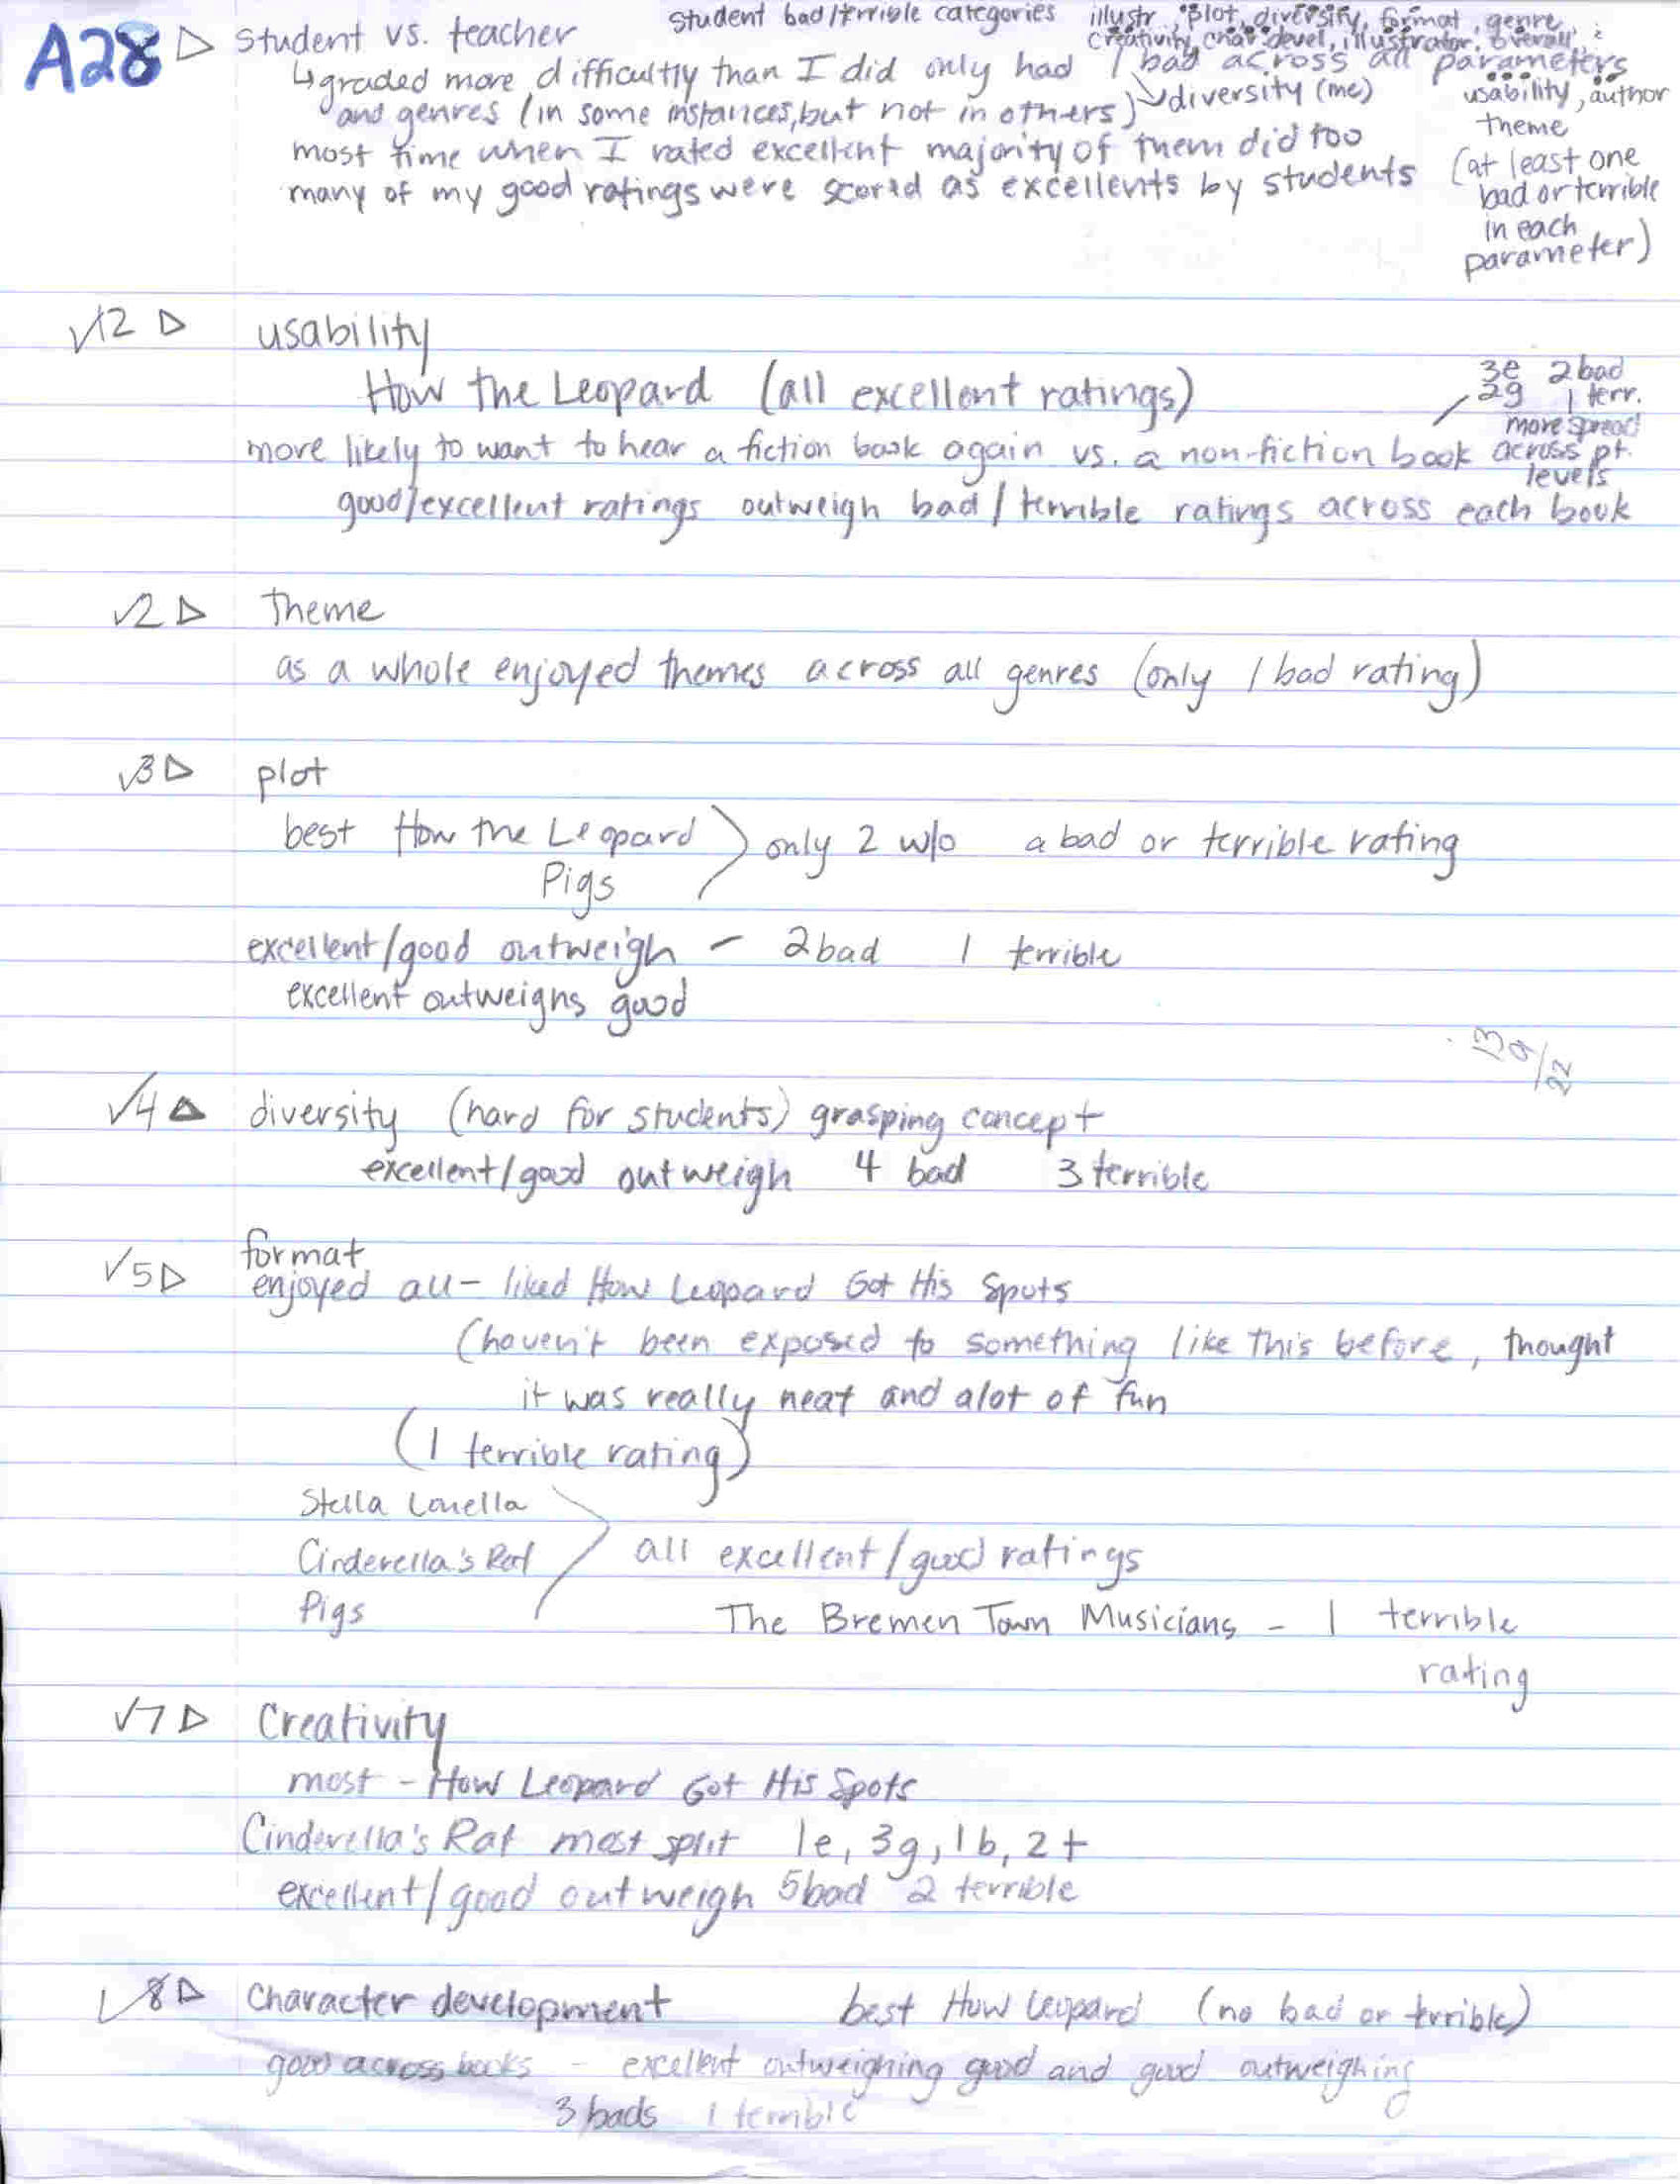 A28 ▷ student vs. teacher student bad/terrible categories illustr., plot, diversity, format, genre,
creativity, char devel, illustrator, overall,
↳ graded more difficultly than I did only had 1 bad across all parameters
and genres (in some instances, but not in others) ↘ diversity (me) usability, author
theme
most time when I rated excellent majority of them did too
(at least one
many of my good ratings were scored as excellents by students
bad or terrible
in each
parameter)
√12 ▷ usability
How the Leopard (all excellent ratings)
3e 2 bad
2g 1 terr.
more spread
more likely to want to hear a fiction book again vs. a non-fiction book across pt.
levels
good/excellent ratings outweigh bad/terrible ratings across each book
√2 ▷ Theme
as a whole enjoyed themes across all genres (only 1 bad rating)
√3 ▷ plot
best How the Leopard ) only 2 w/o a bad or terrible rating
Pigs
excellent/good outweigh - 2 bad 1 terrible
excellent outweighs good
√4 ▷ diversity (hard for students) grasping concept
excellent/good outweigh 4 bad 3 terrible
format
√5 ▷ enjoyed all - liked How Leopard Got His Spots
(haven't been exposed to something like this before, thought
it was really neat and alot of fun
(1 terrible rating)
Stella Louella
Cinderella's Rat all excellent/good ratings
Pigs The Bremen Town Musicians - 1 terrible
rating
√7 ▷ Creativity
most - How Leopard Got His Spots
Cinderella's Rat most split 1e, 3g, 1b, 2t
excellent/good outweigh 5 bad 2 terrible
√8 ▷ Character development best How Leopard (no bad or terrible)
good across books - excellent outweighing good and good outweighing
3 bads 1 terrible